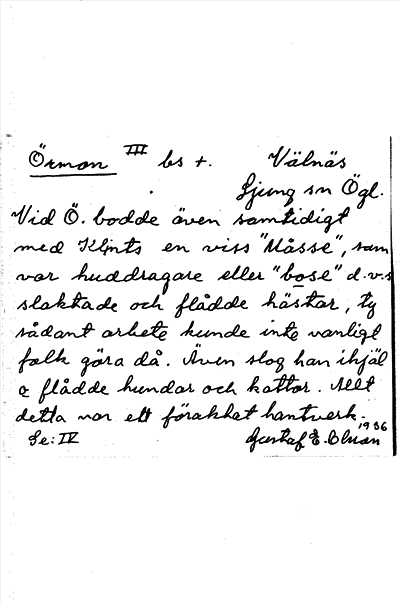 Örmon III bs +. Välnäs
Ljung sn Ögl.
Vid Ö. bodde även samtidigt
med Klints en viss "Måsse", som
var huddragare eller "bose" d.v.s
slaktade och flådde hästar, ty
sådant arbete kunde inte vanligt
folk göra då. Även slog han ihjäl
& flådde hundar och kattor. Allt
detta var ett föraktat hantverk.
1936
Se: IV Gustaf E. Olsson